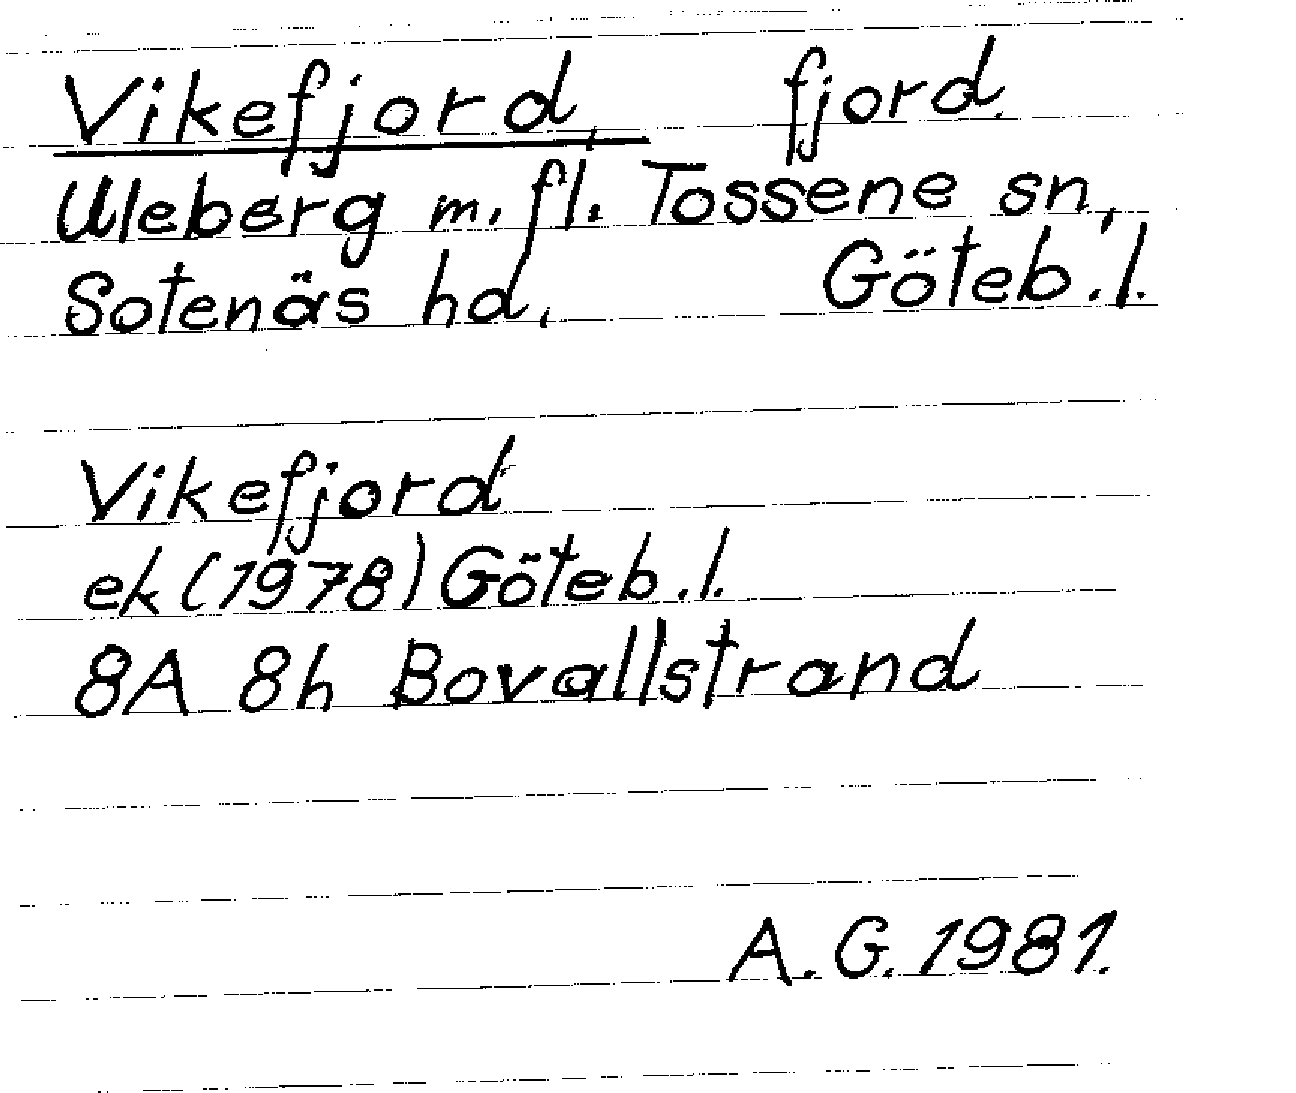 Vikefjord, fjord.
Uleberg m.fl. Tossene sn,
Sotenäs hd, Göteb.l.
Vikefjord
ek (1978) Göteb.l.
8A 8h Bovallstrand
A.G. 1981.